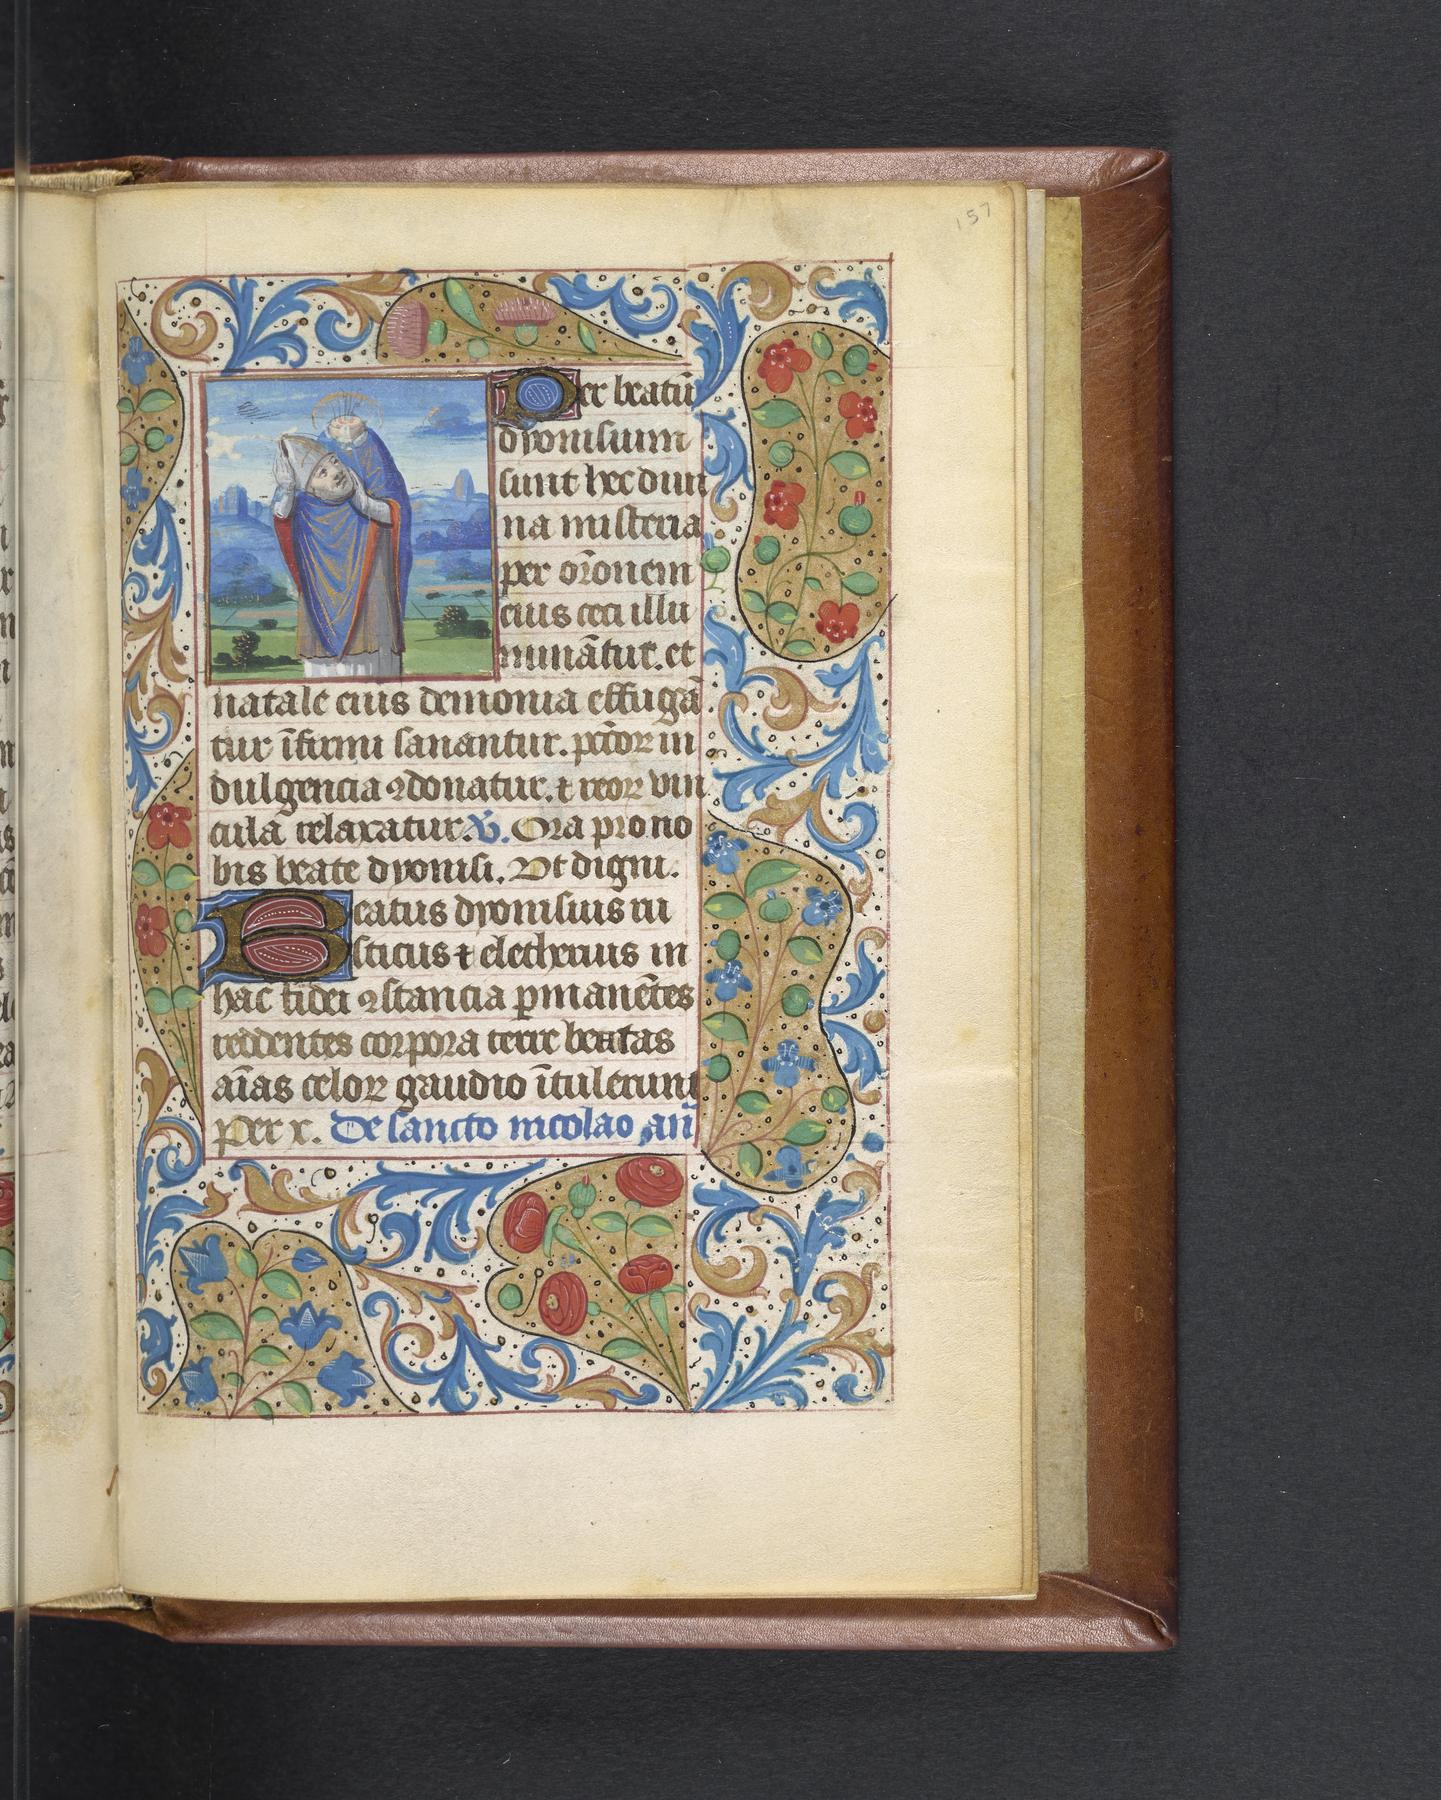 157
Per beatū
dyonisium
sunt hec diui
na misteria
per or̄onem
eius ceci illu
minātur. et
natale eius demonia effugā
tur īfirmi sanantur. pctōꝝ in
dulgencia ꝯdonatur. ⁊ reoꝝ vin
cula relaxatur. ℣. Ora pro no
bis beate dyonisi. Vt digni.
Beatus dyonisius ru
sticus ⁊ eletherius in
hac fidei ꝯstancia ꝑmanētes
reddentes corpora terre beatas
aīas celoꝝ gaudio ītulerunt
per x. De sancto nicolao an̄